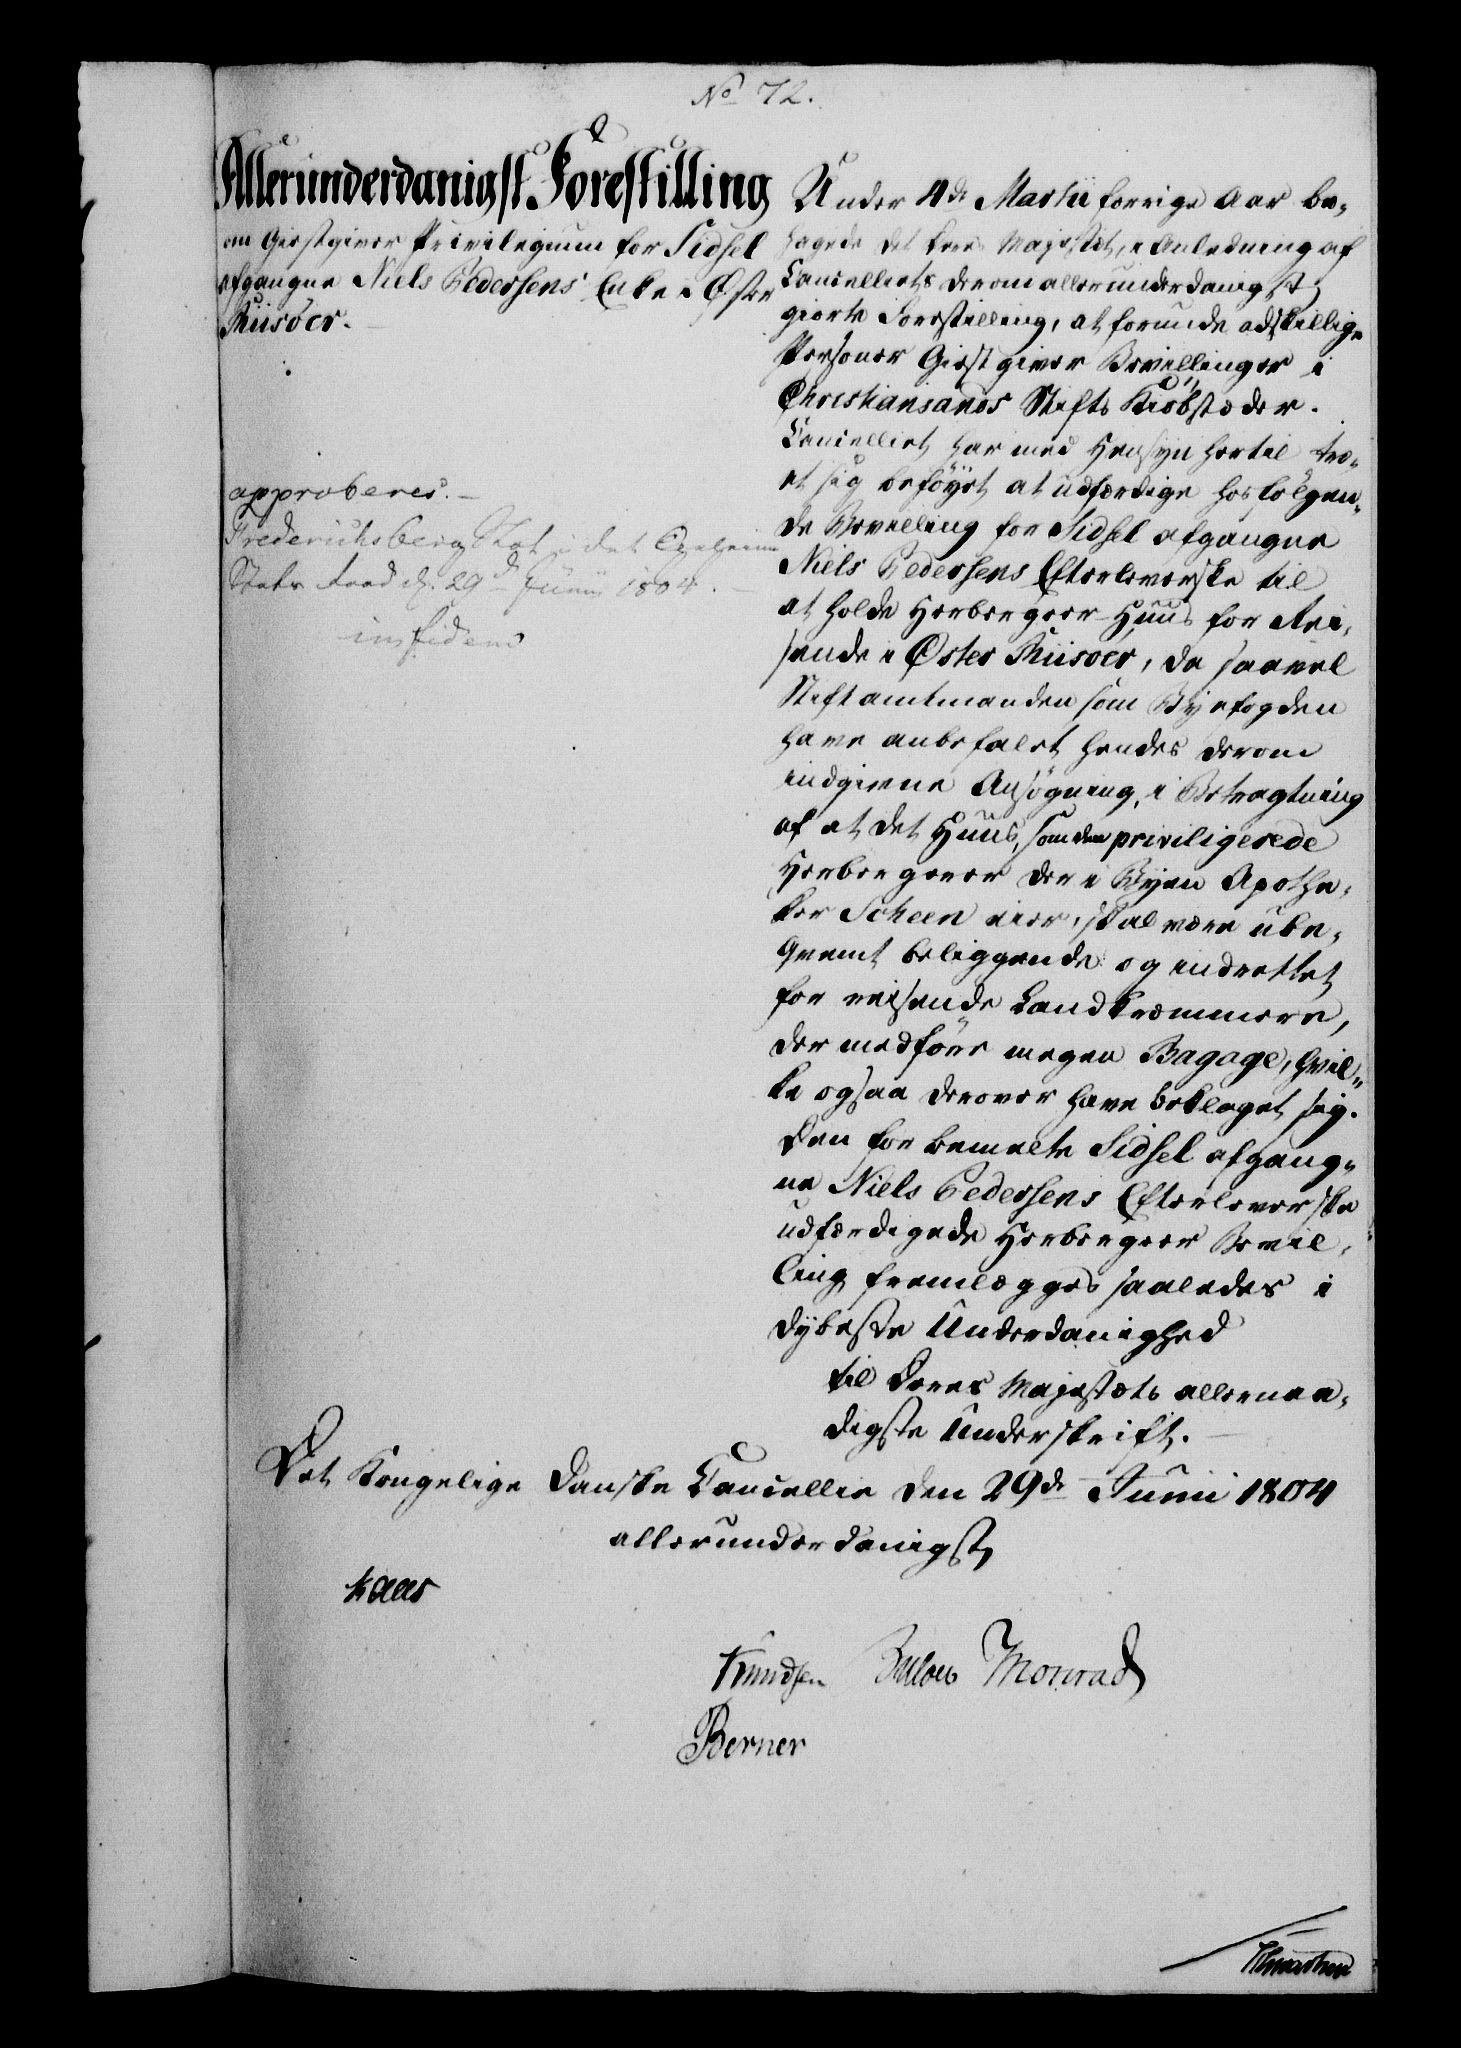 No 72.
Allerunderdanigst Forestilling
om Giestgiver Privilegium for Sidsel
afgangne Niels Pedersens Enke i Øster
Riisöer.
approberes.
Frederichsberg Slot i det Geheime
Stats Raad d. 29d Junii 1804.
in fidem
Under 4de Martii forrige Aar be-
hagede det Eders Majestæt, i Anledning af
Cancelliets derom allerunderdanigst
giorte Forestilling, at forunde adskillige
Personer Giestgiver Bevillinger i
Christiansands Stifts Kiöbstæder.
Cancelliet har med Hensyn hertil tro-
et sig beföyet at udfærdige hosfölgen-
de Bevilling for Sidsel afgangne
Niels Pedersens Efterleverske til
at holde Herbergeer-Huus for Rei-
sende i Øster Riisoer, da saavel
Stiftamtmanden som Byefogden
have anbefalet hendes derom
indgivne Ansögning, i Betragtning
af at det Huus, som den priviligerede
Herbergerer der i Byen Apothe-
ker Scheen eier, skal være ube-
qvemt beliggende og indrettet
for reisende Landkræmmere,
der medföre megen Bagage, hvil-
ke ogsaa derover have beklaget sig.
Den for bemelte Sidsel afgang-
ne Niels Pedersens Efterleverske
udfærdigede Herbergeer Bevil-
ling fremlægges saaledes i
dybeste Underdanighed
til Deres Majestæts allernaa-
digste Underskrift.
Det Kongelige Danske Cancellie den 29de Junii 1804
allerunderdanigst
Kaas
Knudsen Bülow Monrad
Berner